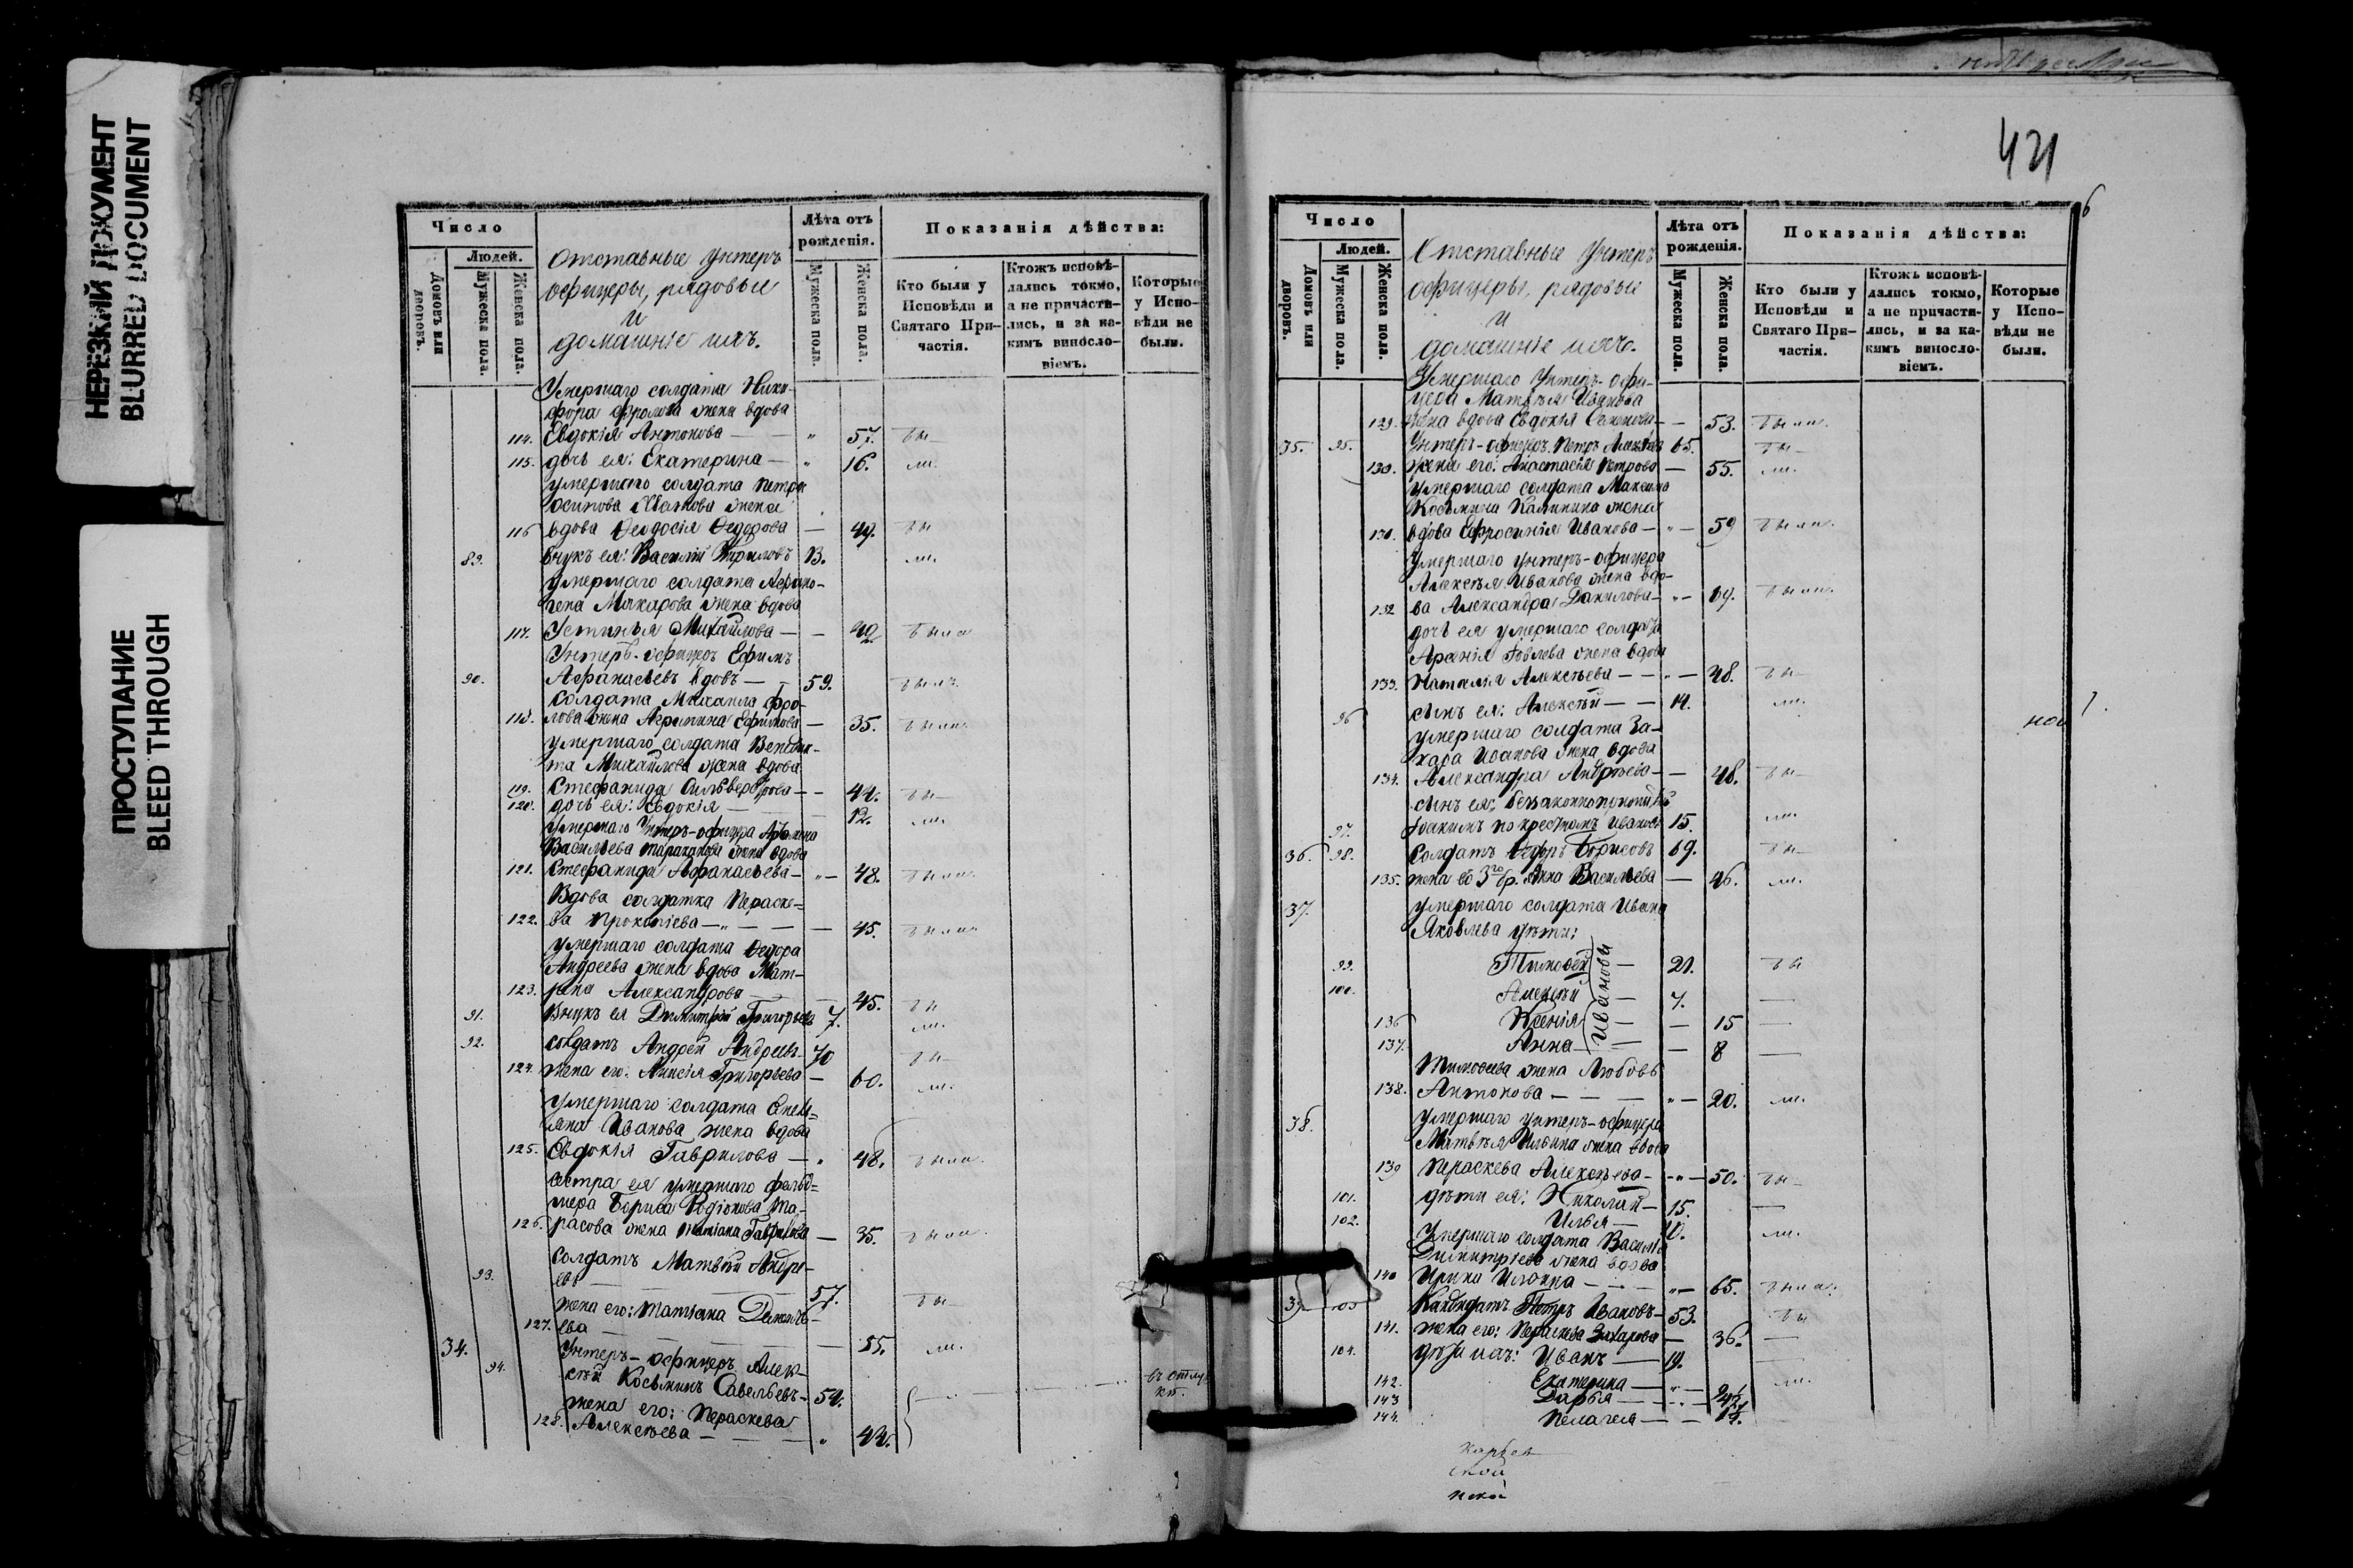 НЕРЕЗКИЙ ДОКУМЕНТ
BLURRED DOCUMENT
ПРОСТУПАНИЕ
BLEED THROUGH
Число
Людей.
Домовъ или дворовъ.
Мужеска пола.
Женска пола.
Отставные Унтеръ
офицеры, рядовые
и
домашніе ихъ.
Лѣта отъ рожденія.
Мужеска пола.
Женска пола.
Показанія дѣйства:
Кто были у Исповѣди и Святаго Причастія.
Ктожъ исповѣдались токмо, а не причастились, и за какимъ винословіемъ.
Которые у Исповѣди не были.
Умершаго солдата Ники-
фора Фролова жена вдова
114. Евдокія Антонова — " 57. бы-
115. дочь ея: Екатерина — " 16. ли.
умершаго солдата Петра
Осипова жена
116 вдова Ѳеодосія Ѳедорова — 49. бы
89. внукъ ея: Василій 13. ли.
умершаго солдата Афино-
гена Макарова жена вдова
117. Устинья Михайлова — 42 была
Унтеръ-офицеръ Ефимъ
90. Афанасьевъ вдовъ — 59. былъ
Солдата Михаила Фро-
118. лова жена Агрипина Ефимова — 35. была.
умершаго солдата Венедик-
та Михайлова жена вдова
119. Стефанида Сильверстрова — 44. бы-
120. дочь ея: Евдокія — 12. ли.
Умершаго Унтеръ-офицера
Васильева Тараканова жена вдова
121. Стефанида Афанасьева — " — 48. была.
Вдова солдатка Пераске-
122. ва Прокопіева — " — 45. была.
умершаго солдата Ѳедора
Андреева жена вдова Мат-
123. рена Александрова — 45. бы
91. Внукъ ея Димитрій Григорьевъ 7. ли.
92. солдатъ Андрей Андреевъ 70 бы-
124. жена его: Анисія Григорьева — 60. ли.
умершаго солдата Емель-
яна Иванова жена вдова
125. Евдокія Гаврилова — " 48. была.
сестра ея умершаго фельд-
шера Бориса Родіонова Та-
126. расова жена Татіана Гаврилова — 35. была.
93. Солдатъ Матвѣй Андре-
евъ — 57. бы-
жена его: Татьяна
127. ева — 55. ли.
34. 94. Унтеръ-офицеръ Алек-
сѣй Косьминъ Савельевъ — 54. въ отлуч-
жена его: Пераскева кѣ.
128. Алексѣева — " 44.
421
6
Число
Людей.
Домовъ или дворовъ.
Мужеска пола.
Женска пола.
Отставные Унтеръ
офицеры, рядовые
и
домашніе ихъ.
Лѣта отъ рожденія.
Мужеска пола.
Женска пола.
Показанія дѣйства:
Кто были у Исповѣди и Святаго Причастія.
Ктожъ исповѣдались токмо, а не причастились, и за какимъ винословіемъ.
Которые у Исповѣди не были.
Умершаго Унтеръ-офи-
цера Матвѣя Иванова
129. жена вдова Евдокія Семенова — 53. была.
35. 95. Унтеръ-офицеръ Петръ 65. бы-
130. жена его: Анастасія Петрова — 55. ли.
умершаго солдата Максима
Косьмина Калинина жена
131. вдова Ефросинія Иванова — " — 59 была.
Умершаго унтеръ-офицера
Алексѣя Иванова жена вдо-
132 ва Александра Данилова — " — 69. была.
дочь ея умершаго солдата
Арсенія жена вдова
133. Наталія Алексѣева — " — 48. бы-
96 сынъ ея: Алексѣй — 14. ли.
умершаго солдата За-
хара Иванова жена вдова
134. Александра Андреева — 48. бы-
сынъ ея: незаконнорожденный
97. Іоакимъ по крестномъ Ивановъ 15. ли.
36. 98. Солдатъ Ѳедоръ Борисовъ 69. бы-
135. жена его 3го бр. Анна Васильева — 46. ли.
37. умершаго солдата Ивана
Яковлева дѣти:
99. Тимоѳей — 21. бы
100. Алексѣй — 7. —
136 Ксенія — 15 —
137. Анна — 8 —
Ивановы
Тимоѳеева жена Любовь
138. Антонова — " — 20. ли.
38. умершаго унтеръ-офицера
Матвѣя Ильина жена вдова
139 Пераскева Алексѣева — " — 50. бы-
101. дѣти ея: Николай — 15. —
102. Илья — 10. ли.
Умершаго солдата Василія
Димитріева жена вдова
140 Ирина — " — 65. была.
39 103 Кандидатъ Петръ Ивановъ — 53. бы
141. жена его: Пераскева Захарова — 36. —
104. дѣти ихъ: Иванъ — 19. —
142. Екатерина — " — 9 ли.
143 Дарья — " —
144. Пелагея —